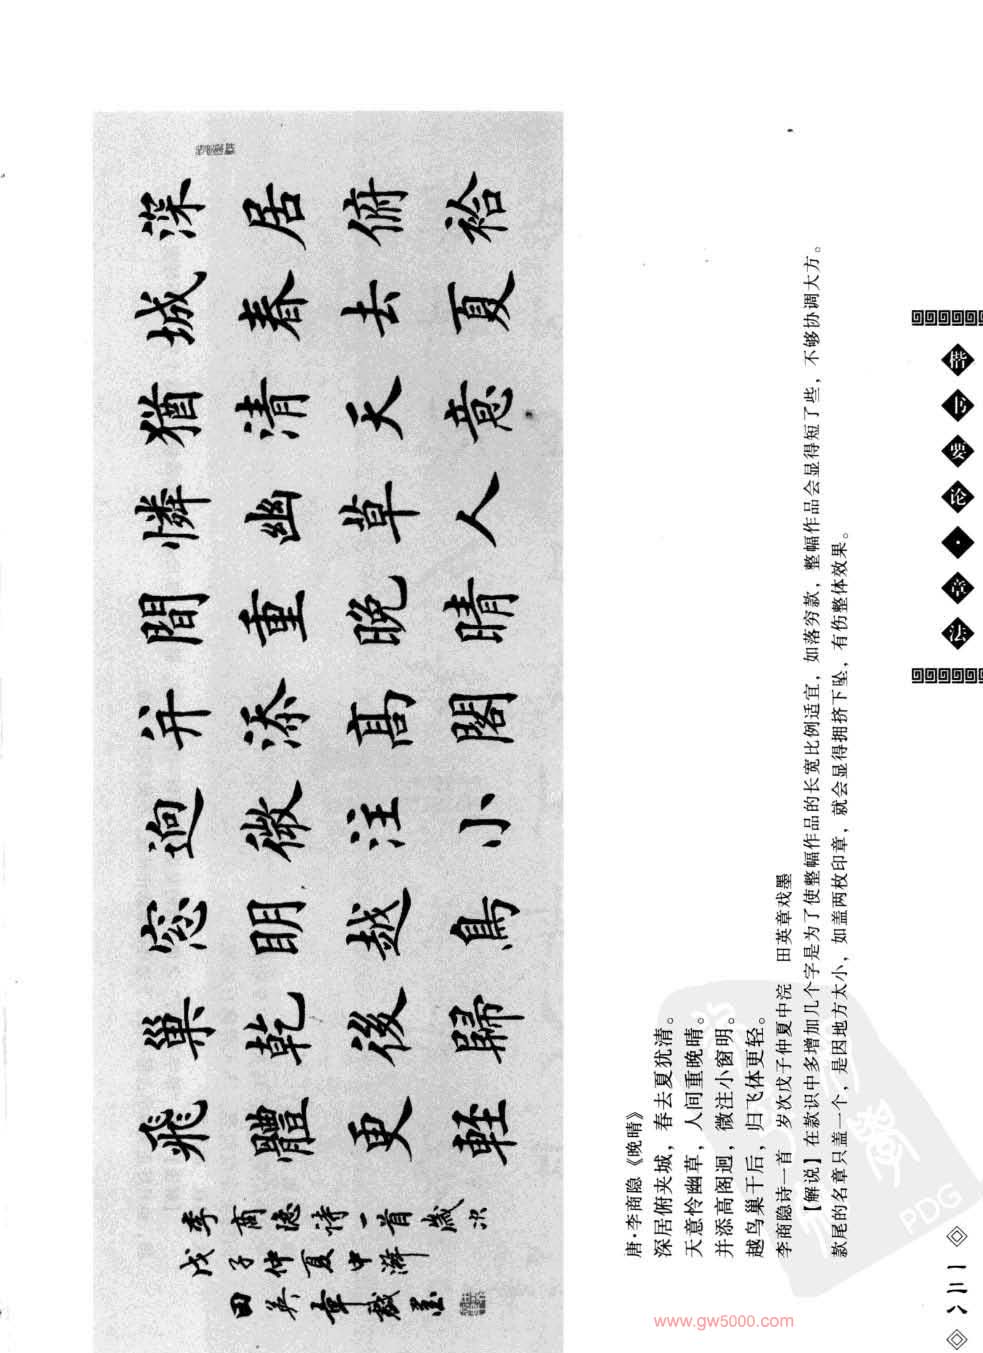 深居俯袷
城春去夏
猶清天意
憐幽草人
間重晚晴
并添高閣
迥微注小
窓明越鳥
巢乾後歸
飛體更輕
李商隱詩一首歲次
戊子仲夏中澣
田英章戲墨
唐·李商隐《晚晴》
深居俯夹城，春去夏犹清。
天意怜幽草，人间重晚晴。
并添高阁迥，微注小窗明。
越鸟巢干后，归飞体更轻。
李商隐诗一首 岁次戊子仲夏中浣 田英章戏墨
【解说】在款识中多增加几个字是为了使整幅作品的长宽比例适宜，如落穷款，整幅作品会显得短了些，不够协调大方。
款尾的名章只盖一个，是因地方太小，如盖两枚印章，就会显得拥挤下坠，有伤整体效果。
楷书要论·章法
一二八
PDG
www.gw5000.com